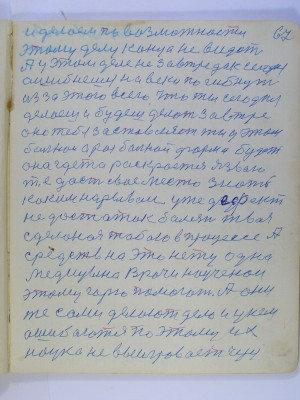 сделаем по возможности 67
этому делу конца не видать
А у этом деле не завтра дак сегодн
ошибнешся на веки погибнут
из за этого всего что ты сегодня
делаем и будем делат завтре
оно тебя заставляет ты у этом
больной а раз больной форма будет
она где то раскроется язвою
т.е даст свое место знать
каким нарывам уже дефект
недостаток болезн твоя
сделоная тобою в процессе А
средств на это нету одна
медицина Врачи наученои
этому горю помогат. А они
те сами делают дело и у нем
ошибаются поэтому их
наука не выигровает ету